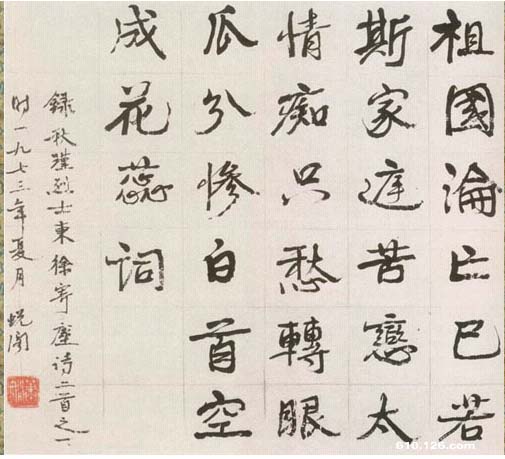 祖國淪亡已若
斯家庭苦戀太
情痴只愁轉眼
瓜分慘白首空
成花蕊詞
錄秋瑾烈士柬徐寄塵诗二首之一
时一九七三年夏月
610.126.com